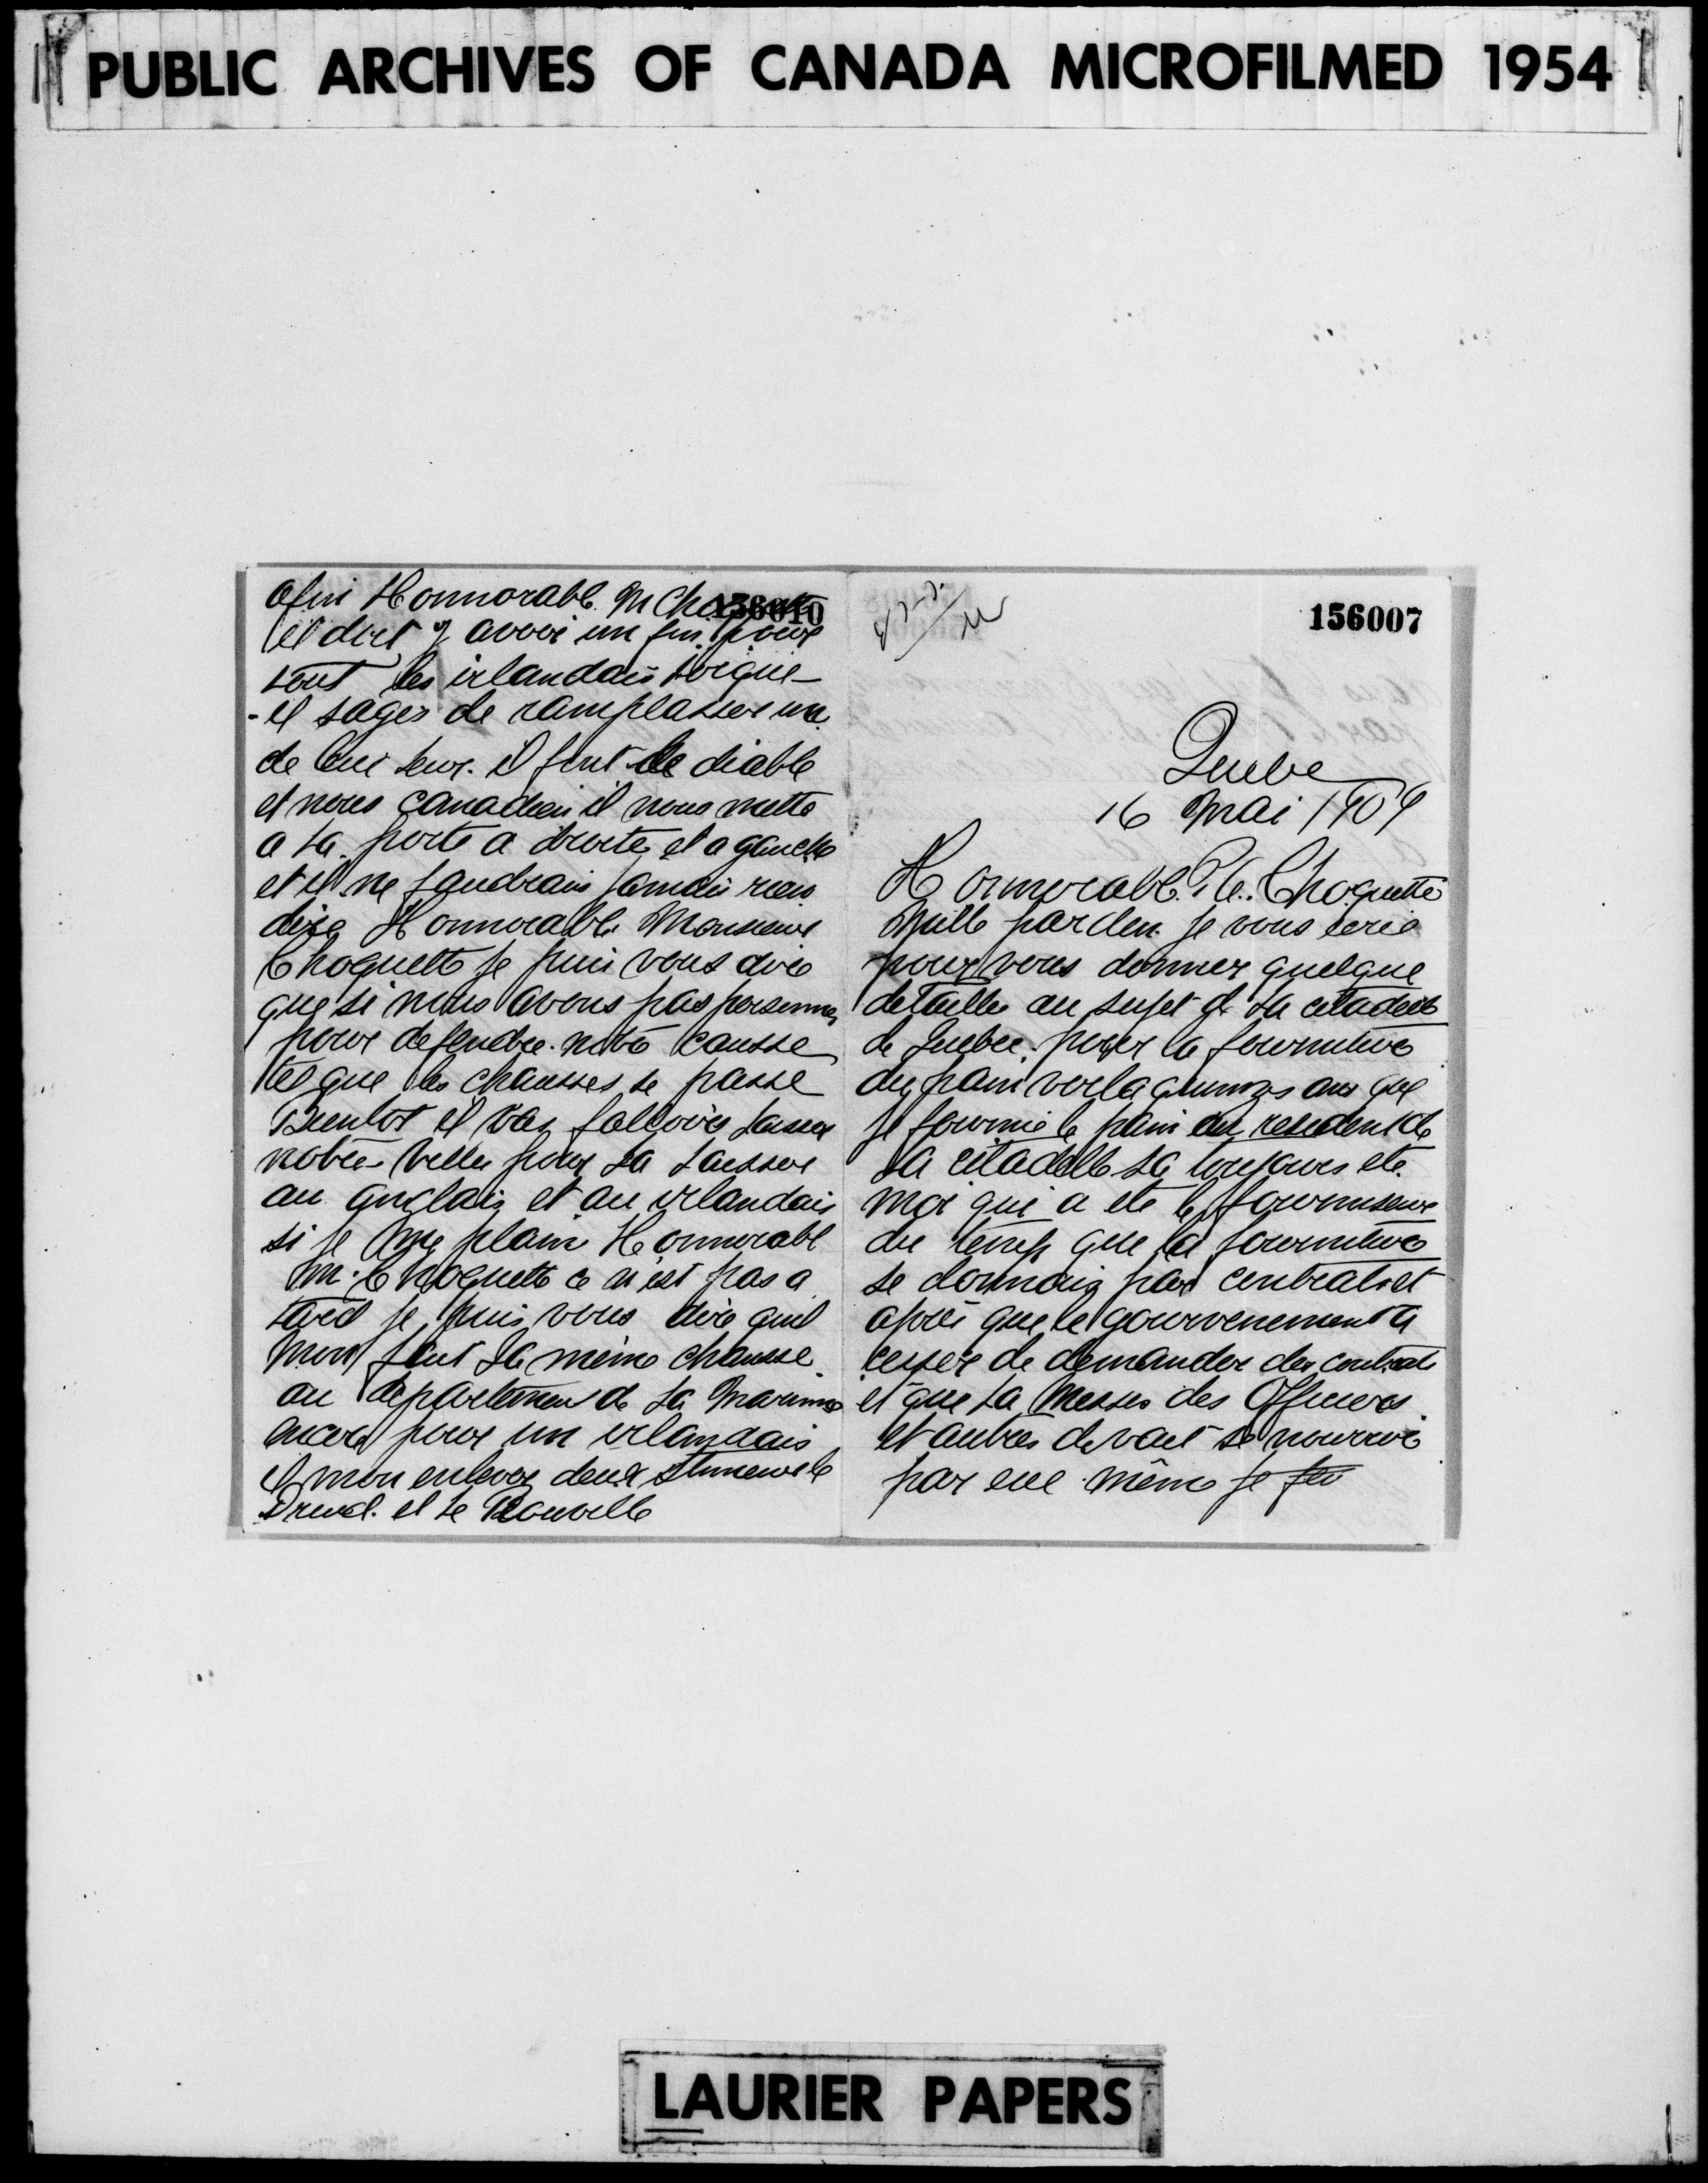 PUBLIC ARCHIVES OF CANADA MICROFILMED 1954
156010
afin Honnorabl. M Choquette
il doit y avoir un fin pour
tout les irlandais
- il sages de ramplasser un
de leur. il font le diable
et nous canadien il nous mette
a la porte a droite et a gauche
et il ne faudrais jamais rien
dire Honnorabl. Monsieur
Choquette je puis vous dire
que si nous avons pas personnes
pour defendre notre causse
tel que les chausses se passe
Bientot il vas falloires laisser
notre ville pour la laisser
au anglais et au irlandais
si je me plain Honnorabl
M. Choquette ce n'est pas a
tord je puis vous dire quil
mon fait la même chausse
au departemen de la Marinne
encore pour un irlandais
il mon enlever deux le
Druid. et le Rouville
156007
Quebe
16 Mai 1909
Honnorabl. P. A. Choquette
Mille parden je vous ecrie
pour vous donner quelque
detaille au sujet de la citadelle
de Quebec. pour la fourniture
du pain voila quinzes ans que
je fournie le pain au resident de
la citadelle sa toujours ete
moi qui a ete le fournisseur
du temp que la fourniture
se donnais par contrat et
apres que le gourvenement a
cesser de demander des contrats
et que la Messes des Officiers
et autres devait se nourrire
par eue même je
LAURIER PAPERS